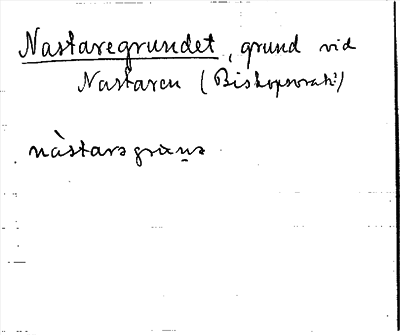 Nastaregrundet, grund vid
Nastaren (Bishopsorak!)
nàstarsgrun̲s